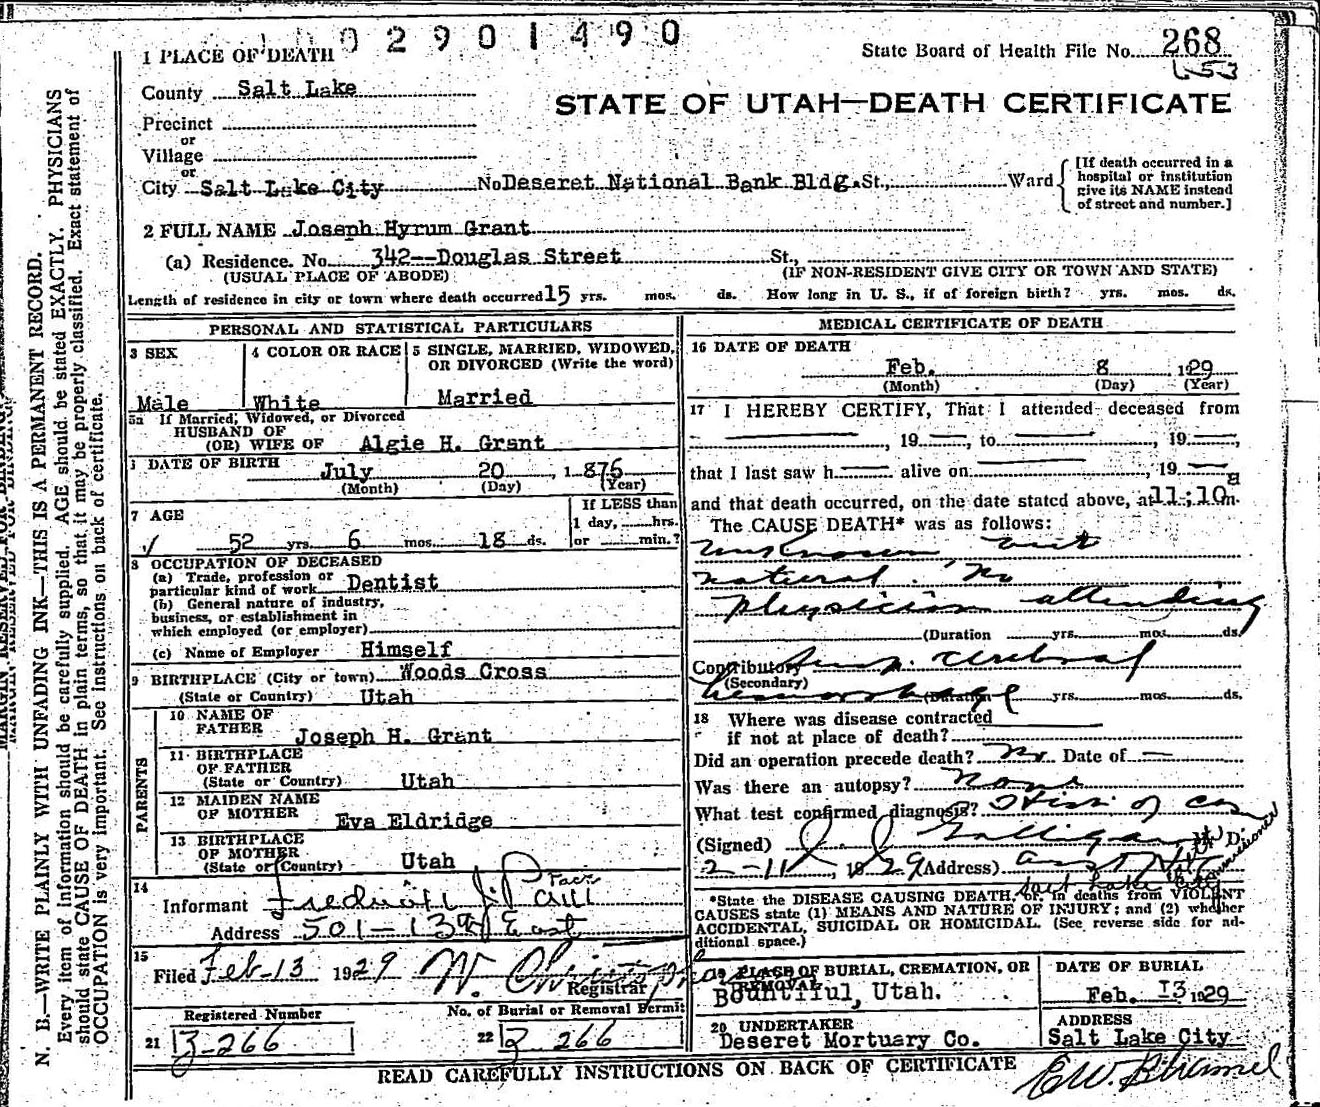 02901490
1 PLACE OF DEATH
State Board of Health File No. 268
County Salt Lake
STATE OF UTAH—DEATH CERTIFICATE
Precinct
or
Village
or
City Salt Lake City No Deseret National Bank Bldg. St., Ward
[If death occurred in a
hospital or institution
give its NAME instead
of street and number.]
2 FULL NAME Joseph Hyrum Grant
(a) Residence. No. 342--Douglas Street St.,
(USUAL PLACE OF ABODE) (IF NON-RESIDENT GIVE CITY OR TOWN AND STATE)
Length of residence in city or town where death occurred 15 yrs. mos. ds. How long in U. S., if of foreign birth? yrs. mos. ds.
PERSONAL AND STATISTICAL PARTICULARS
3 SEX
Male
4 COLOR OR RACE
White
5 SINGLE, MARRIED, WIDOWED,
OR DIVORCED (Write the word)
Married
5a If Married, Widowed, or Divorced
HUSBAND OF
(OR) WIFE OF Algie H. Grant
DATE OF BIRTH
July 20, 1876
(Month) (Day) (Year)
7 AGE
52 yrs. 6 mos. 18 ds.
If LESS than
1 day, hrs.
or min.?
8 OCCUPATION OF DECEASED
(a) Trade, profession or
particular kind of work Dentist
(b) General nature of industry,
business, or establishment in
which employed (or employer)
(c) Name of Employer Himself
9 BIRTHPLACE (City or town) Woods Cross
(State or Country) Utah
PARENTS
10 NAME OF
FATHER Joseph H. Grant
11 BIRTHPLACE
OF FATHER
(State or Country) Utah
12 MAIDEN NAME
OF MOTHER Eva Eldridge
13 BIRTHPLACE
OF MOTHER
(State or Country) Utah
14
Informant
Address 501-13th East
15
Filed Feb-13 1929 W. Christopherson
Registrar
Registered Number
21 3-266
No. of Burial or Removal Permit
22 3 266
MEDICAL CERTIFICATE OF DEATH
16 DATE OF DEATH
Feb. 8 1929
(Month) (Day) (Year)
17 I HEREBY CERTIFY, That I attended deceased from
, 19 , to , 19 ,
that I last saw h alive on , 19
and that death occurred, on the date stated above, at 11:10 a m.
The CAUSE DEATH* was as follows:
unknown but
natural. No
physician attending
(Duration yrs. mos. ds.
Contributory cerebral
(Secondary)
hemorrhage (Duration yrs. mos. ds.
18 Where was disease contracted
if not at place of death?
Did an operation precede death? No Date of —
Was there an autopsy? none
What test confirmed diagnosis? Hist. of case
(Signed) M. D.
2-11, 1929 (Address)
Salt Lake City
*State the DISEASE CAUSING DEATH, or, in deaths from VIOLENT
CAUSES state (1) MEANS AND NATURE OF INJURY; and (2) whether
ACCIDENTAL, SUICIDAL OR HOMICIDAL. (See reverse side for ad-
ditional space.)
19 PLACE OF BURIAL, CREMATION, OR
REMOVAL
Bountiful, Utah.
DATE OF BURIAL
Feb. 13 1929
20 UNDERTAKER
Deseret Mortuary Co.
ADDRESS
Salt Lake City
READ CAREFULLY INSTRUCTIONS ON BACK OF CERTIFICATE
N. B.—WRITE PLAINLY WITH UNFADING INK—THIS IS A PERMANENT RECORD.
Every item of information should be carefully supplied. AGE should be stated EXACTLY. PHYSICIANS
should state CAUSE OF DEATH in plain terms, so that it may be properly classified. Exact statement of
OCCUPATION is very important. See instructions on back of certificate.
MARGIN RESERVED FOR BINDING